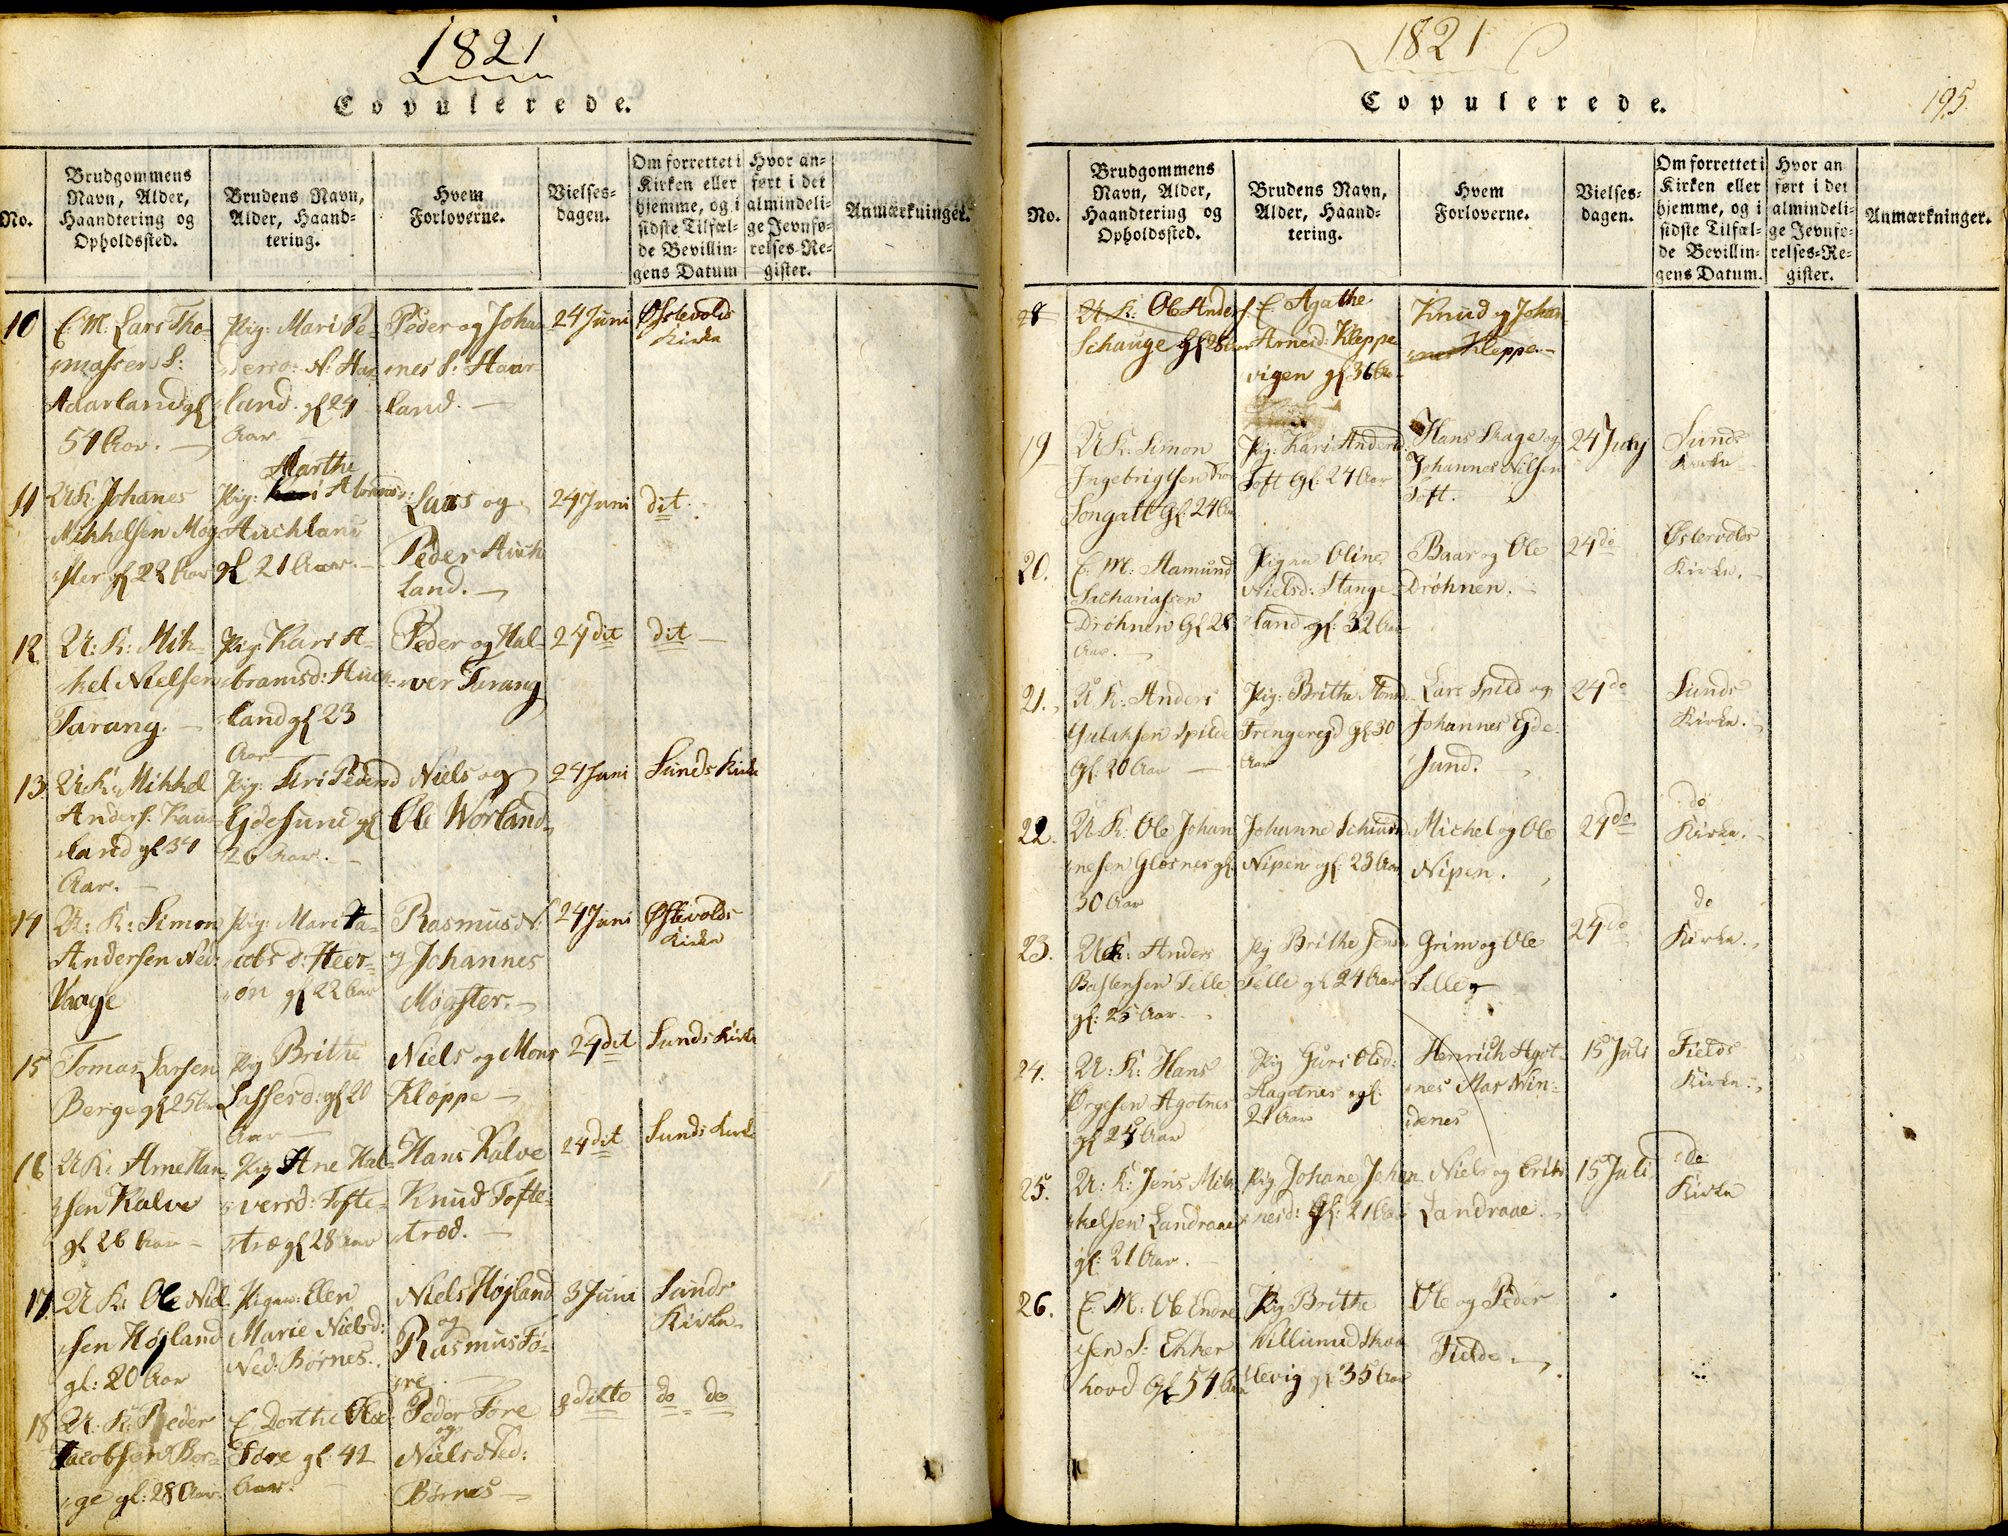 1821
Copulerede.
No.
Brudgommens
Navn, Alder,
Haandtering og
Opholdssted.
Brudens Navn,
Alder, Haand-
tering.
Hvem
Forloverne.
Vielses-
dagen.
Om forrettet i
Kirken eller
hjemme, og i
sidste Tilfæl-
de Bevillin-
gens Datum
Hvor an-
ført i det
almindeli-
ge Jevnfø-
relses-Re-
gister.
Anmærkninger.
10
E. M. Lars Tho-
massen S:
Haarland gl
54 Aar.
Pig: Mari Pe-
ders D: N: Haar
land. gl 24
Aar
Peder og Johan-
nes S: Haar
land.
24 Juni
Østevolds
Kirke
11
U K: Johanes
Mikkelsen Møg
ster gl 22 Aar
Marthe
Pig:
Auchland
gl 21 Aar.
Lars og
Peder Auch
land.
24 Juni
dit
12
U: K: Mik-
kel Nielsen
Tarang.
Pig: Kari A-
bramsd: Huck-
land gl 23
Aar
Peder og Hal-
ver Tarang
24 dit
dit
13
U K: Mikkel
Anders:
land gl 34
Aar.
Pig: Siri Pedersd
Gdesund gl
26 Aar.
Niels og
Ole Worland
24 Juni
Sunds Kirke
14
U: K: Simon
Andersen Ned:
Vaage
Pig: Mari Ja-
cobs d: Heer-
øn gl 22 Aar
Rasmus N:
og Johannes
Møgster.
24 Juni
Østevolds
Kirke
15
Tomas Larsen
Berge gl 25 Aar
Pig Brithe
Lassesd: gl 20
Aar
Niels og Mons
Kloppe
24 dit
Sunds Kirke
16
U K: Arne Han-
sen Kalve
gl 26 Aar
Pig Ane Hal-
versd: Tofte-
træ gl 28 Aar
Hans Kalve
Knud Tofte-
træd.
24 dit
Sunds Kirke
17
U K: Ole Niel
sen Højland
gl: 20 Aar
Pigen: Elen
Marie Nielsd:
Ned: Børnes.
Niels Højland
og
Rasmus Tø-
re
3 Juni
Sunds
Kirke
18
U. K: Peder
Jacobsen Bor-
ge gl: 28 Aar.
E Dorthe Olsd:
Tøre gl 42
Aar.
Peder Tøre
og
Niels Ned:
Børnes
3 ditto
do do
1821
195.
Copulerede.
No.
Brudgommens
Navn, Alder,
Haandtering og
Opholdssted.
Brudens Navn,
Alder, Haand-
tering.
Hvem
Forloverne.
Vielses-
dagen.
Om forrettet i
Kirken eller
hjemme, og i
sidste Tilfæl-
de Bevillin-
gens Datum.
Hvor an
ført i det
almindeli-
ge Jevnfø-
relses-Re-
gister.
Anmærkninger.
28
U. K: Ole Anders:
Schauge gl 28 Aar
E. Agathe
Arnesd: Kleppe
vigen gl 36 Aar
Knud og Johan-
nes Kleppe.
19
U K: Simon
Ingebrigtsen
Songatt gl 24 Aar
Pig: Kari Andersd:
Toft Gl: 24 Aar
Hans Skage og
Johannes Nilsen
Toft.
24 July
Sunds
Kirke
20.
E. M: Aamund
Sachariassen
Drøhnen Gl 28
Aar.
Pigen Oline
Nielsd: Stange-
land gl: 32 Aar
Baar og Ole
Drøhnen.
24 do
Østervolds
Kirke.
21.
U K: Anders
Gulaksen Spilde
Gl: 20 Aar
Pig: Brithe
Trengereid gl 30
Aar
Lars Spild og
Johannes Gde-
sund.
24 do
Sunds
Kirke.
22.
U. K: Ole Johan
nesen Glesnes gl
30 Aar
Johanne
Nipen gl. 23 Aar
Michel og Ole
Nipen.
24 do
do
Kirke.
23.
U K: Anders
Telle
gl: 25 Aar.
Pig Brithe
Telle gl 24 Aar
Grim og Ole
Telle
24 do
do
Kirke.
24.
U: K: Hans
Ørgesen Agotnes
gl 24 Aar
Pig Guri Olsd:
Aagotnes gl:
24 Aar
Henrich Agot-
nes
denes
15 Juli
Fields
Kirke.
25.
U: K: Jens Mik
kelsen Landraae
gl: 21 Aar.
Pig Johane Johan
nesd: Gl: 21 Aar
Niels og Erik
Landraae.
15 Juli
do
Kirke
26.
E. M: Ole Endre
sen S: Ekker
hovd Gl 54 Aar
Pig Brithe
levig gl 35 Aar
Ole og Peder
Fielde.